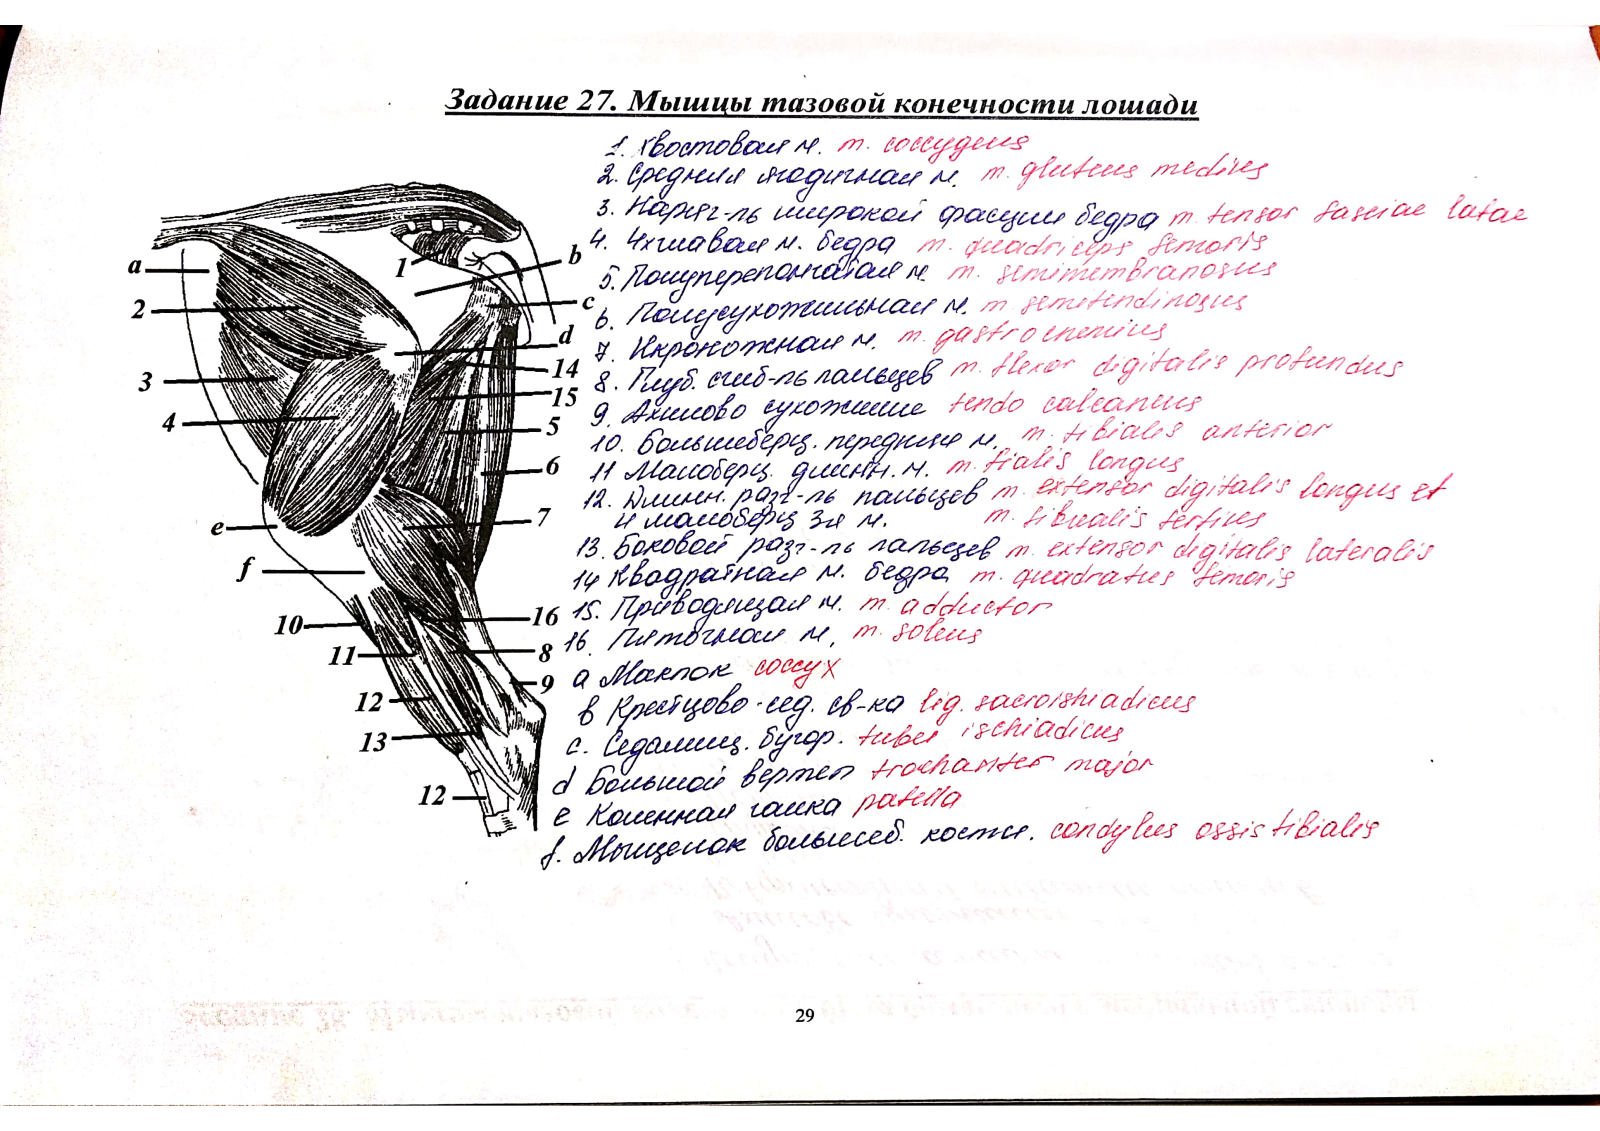 Задание 27. Мышцы тазовой конечности лошади
1. Хвостовая м. m. coccygeus
2. Средняя ягодичная м. m. gluteus medius
3. Напряг-ль широкой фасции бедра m. tensor fasciae latae
4. 4хглавая м. бедра m. quadriceps femoris
5. Полуперепончатая м. m. semimembranosus
6. Полусухожильная м. m semitendinosus
7. Икроножная м. m. gastrocnemius
8. Глуб. сгиб-ль пальцев m. flexor digitalis profundus
9. Ахилово сухожилие tendo calcaneus
10. Большеберц. передняя м. m. tibialis anterior
11 Малоберц. длинн. м. m. fialis longus
12. Длинн. разг-ль пальцев m. extensor digitalis longus et
и малоберц 3я м. m. fibrealis tertius
13. Боковой разг-ль пальцев m. extensor digitalis lateralis
14 Квадратная м. бедра m. quadratus femoris
15. Приводящая м. m. adductor
16. Пяточная м. m. soleus
a Маклок coccyx
b Крестцово-сед. св-ка lig. sacroishiadicus
c. Седалищ. бугор. tuber ischiadicus
d Большой вертел trochanter major
e Коленная чашка patella
f. Мыщелок большеб. кости. condylus ossis tibialis
a
2
3
4
e
f
10
11
12
13
12
1
b
c
d
14
15
5
6
7
16
8
9
29